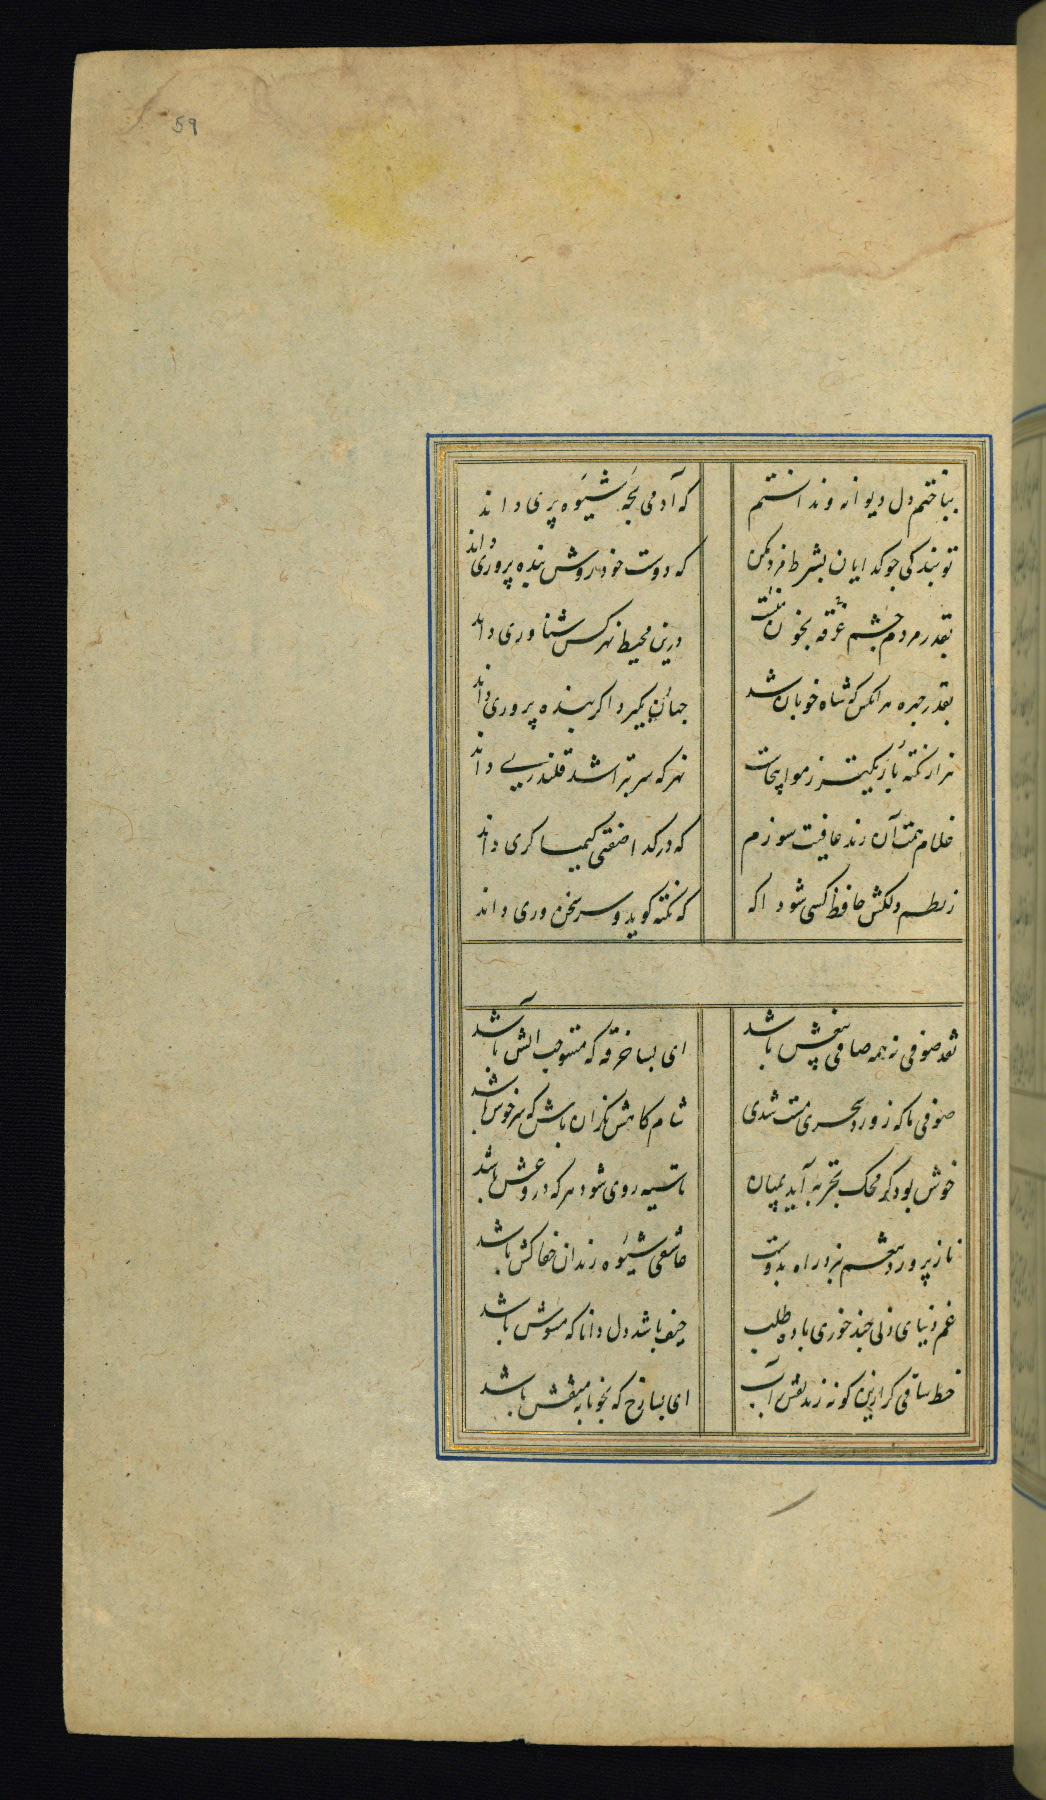 59
بباختم دل دیوانه و ندانستم
که آدمی بچهٔ شیوه پری داند
تو بندگی چو گدایان بشرط مزد مکن
که دوست خود روش بنده پروری داند
بقدر مردم چشم غرقه بخون منست
درین محیط نهرکس شناوری داند
بقد و چهره هر انکس که شاه خوبان شد
جهان بگیرد اگر بنده پروری داند
هزار نکته باریکتر ز مو اینجاست
نهر که سر بتراشد قلندری داند
غلام همت آن رند عافیت سوزم
که در گدا صفتی کیمیاگری داند
ز نظم دلکش حافظ کسی شود اگه
که نکته گوید و سر سخن وری داند
نقد صوفی نه همه صافی بیغش باشد
ای بسا خرقه که مستوجب آتش باشد
صوفی ما که ز ورد سحری مست شدی
شامگاهش نگران باش که سرخوش باشد
خوش بود گر محک تجربه آید بمیان
تا سیه روی شود هر که دروغش باشد
ناز پرورد تنعم نبرد راه بدوست
عاشقی شیوه رندان جفاکش باشد
غم دنیای دنی چند خوری باده طلب
حیف باشد دل دانا که مشوش باشد
خط ساقی گر ازین گونه زند نقش آب
ای بسا رخ که بخونابه منقش باشد